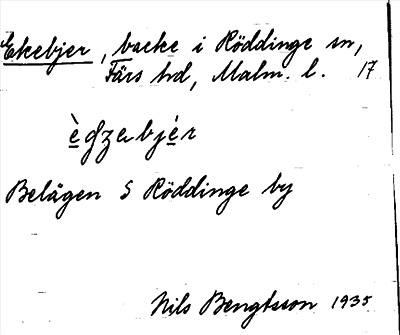 Ekebjer, backe i Röddinge sn,
Färs hd, Malm. l. 17
Belägen S Röddinge by
Nils Bengtsson 1935